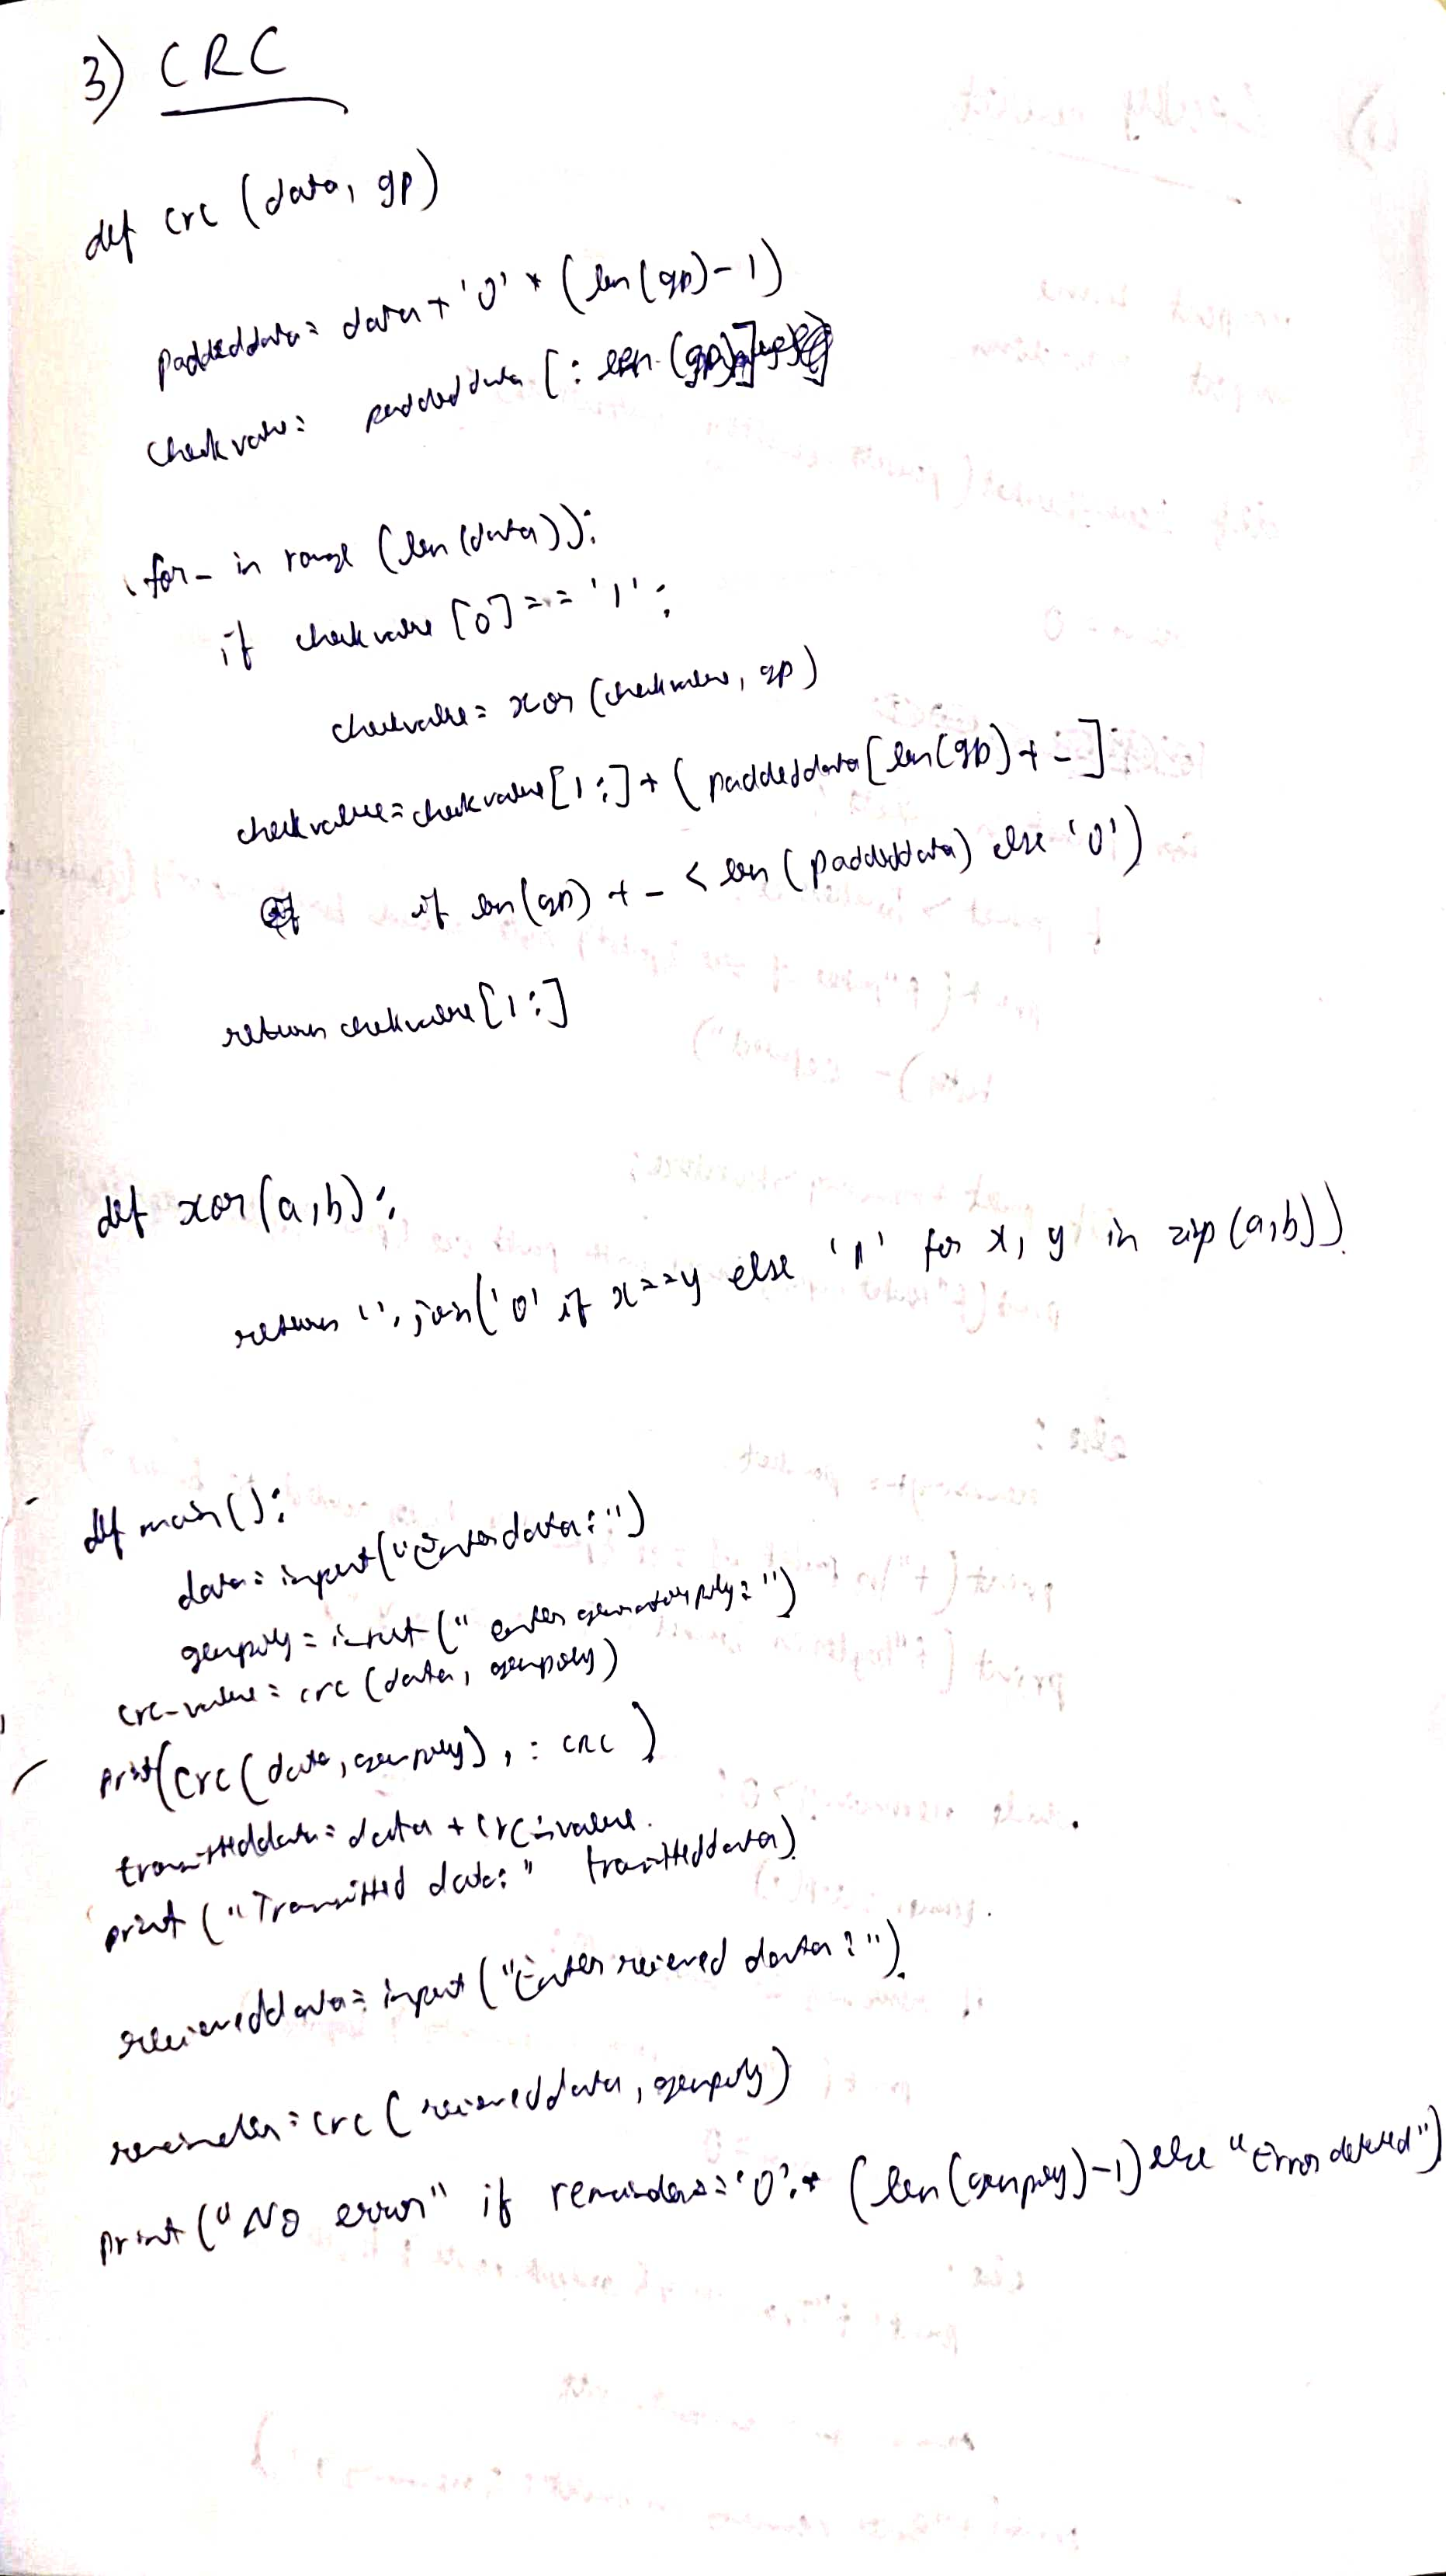 3) CRC
def crc (data, gp)
paddeddata = data + '0' * (len(gp)-1)
checkvalue = paddeddata [: len (gp)]
for _ in range (len (data)):
if checkvalue [0] == '1':
checkvalue = xor (checkvalue, gp)
checkvalue = checkvalue [1:] + ( paddeddata [len(gp) + _]
if len(gp) + _ < len (paddeddata) else '0')
return checkvalue [1:]
def xor (a,b):
return ''.join('0' if x==y else '1' for x, y in zip (a,b))
def main ():
data = input ("Enter data:")
genpoly = input (" enter generator poly:")
crc_value = crc (data, genpoly)
print(crc (data, genpoly), : CRC )
transmitteddata = data + crc_value.
print ("Transmitted data:" transmitteddata)
recieveddata = input ("Enter recieved data:")
remainder = crc ( recieveddata, genpoly)
print ("No error" if remainder = '0' * (len (genpoly)-1) else "Error detected")